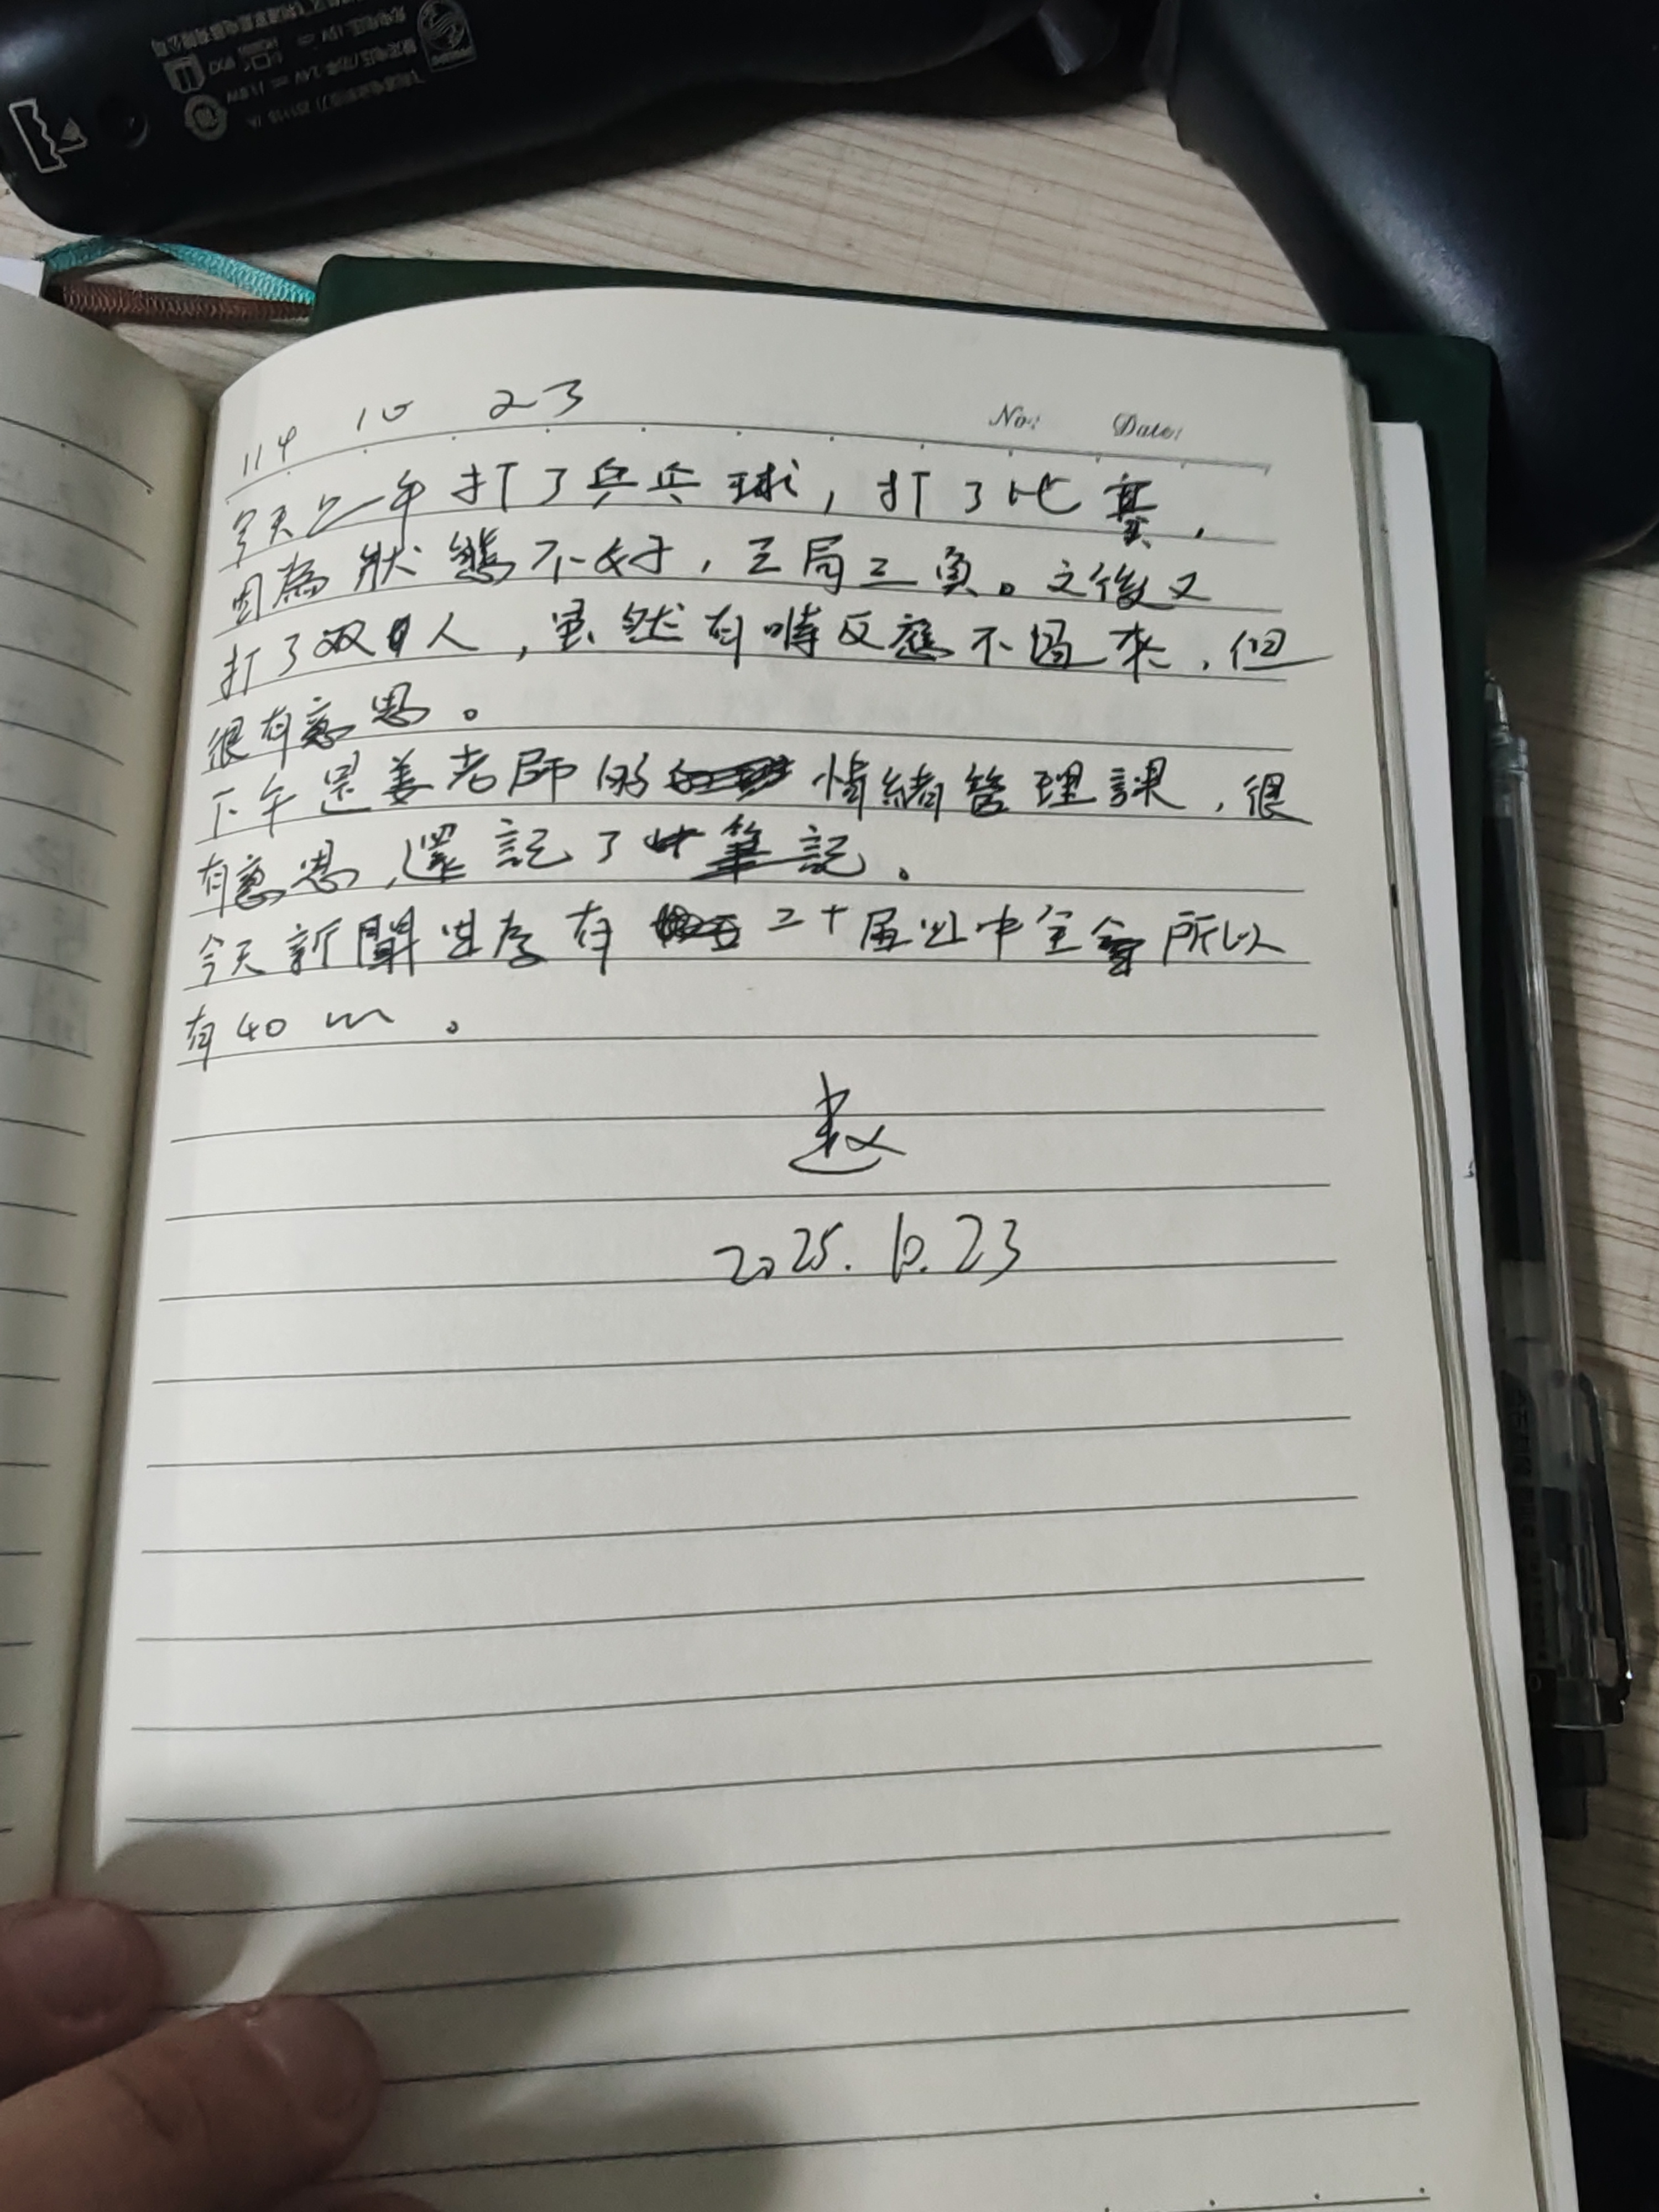 114 10 23
No: Date:
今天上午打了乒乓球，打了比賽，
因為狀態不好，三局三負。之後又
打了双人，虽然有時反應不過來，但
很有意思。
下午是姜老師的情緒管理課，很
有意思，還記了筆記。
今天新聞因為有二十届四中全會所以
有40m。
2025.10.23